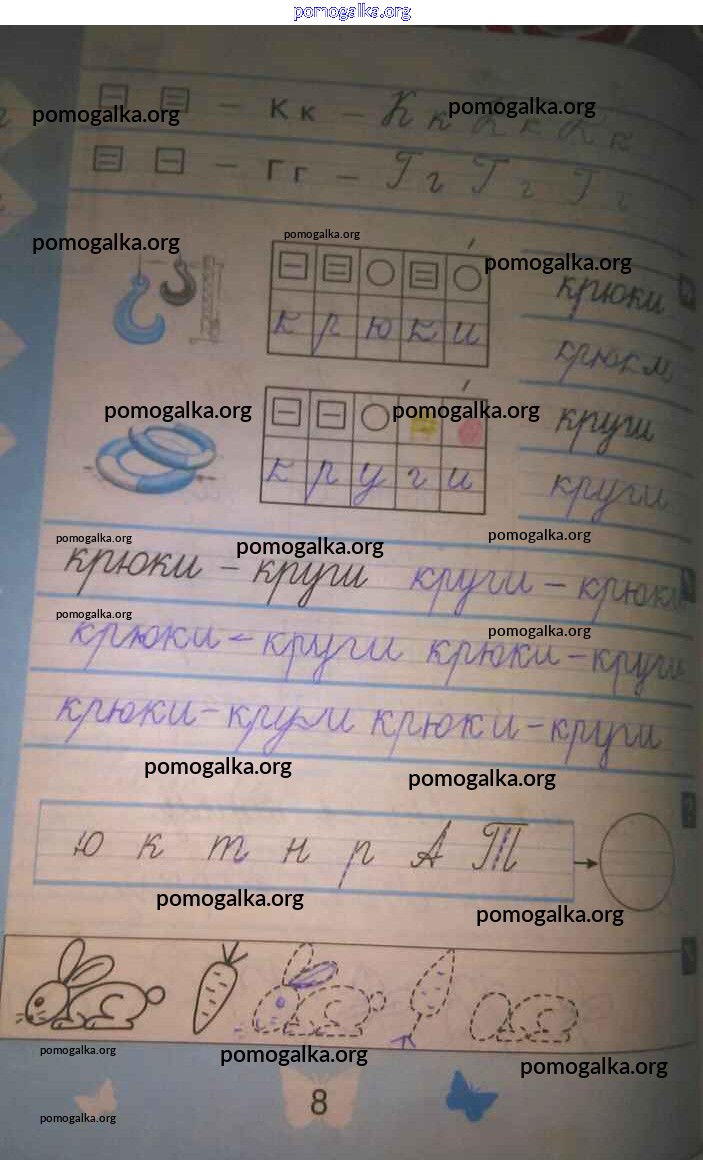 pomogalka.org
К к – К к К к К к
pomogalka.org pomogalka.org
Г г – Г г Г г Г г
pomogalka.org pomogalka.org pomogalka.org
крюки
к р ю к и
крюки
pomogalka.org pomogalka.org
круги
к р у г и
круги
pomogalka.org pomogalka.org pomogalka.org
крюки – круги круги – крюки
pomogalka.org pomogalka.org
крюки – круги крюки – круги
крюки – круги крюки – круги
pomogalka.org pomogalka.org
ю к т н р А Т
pomogalka.org pomogalka.org
pomogalka.org pomogalka.org pomogalka.org
8
pomogalka.org